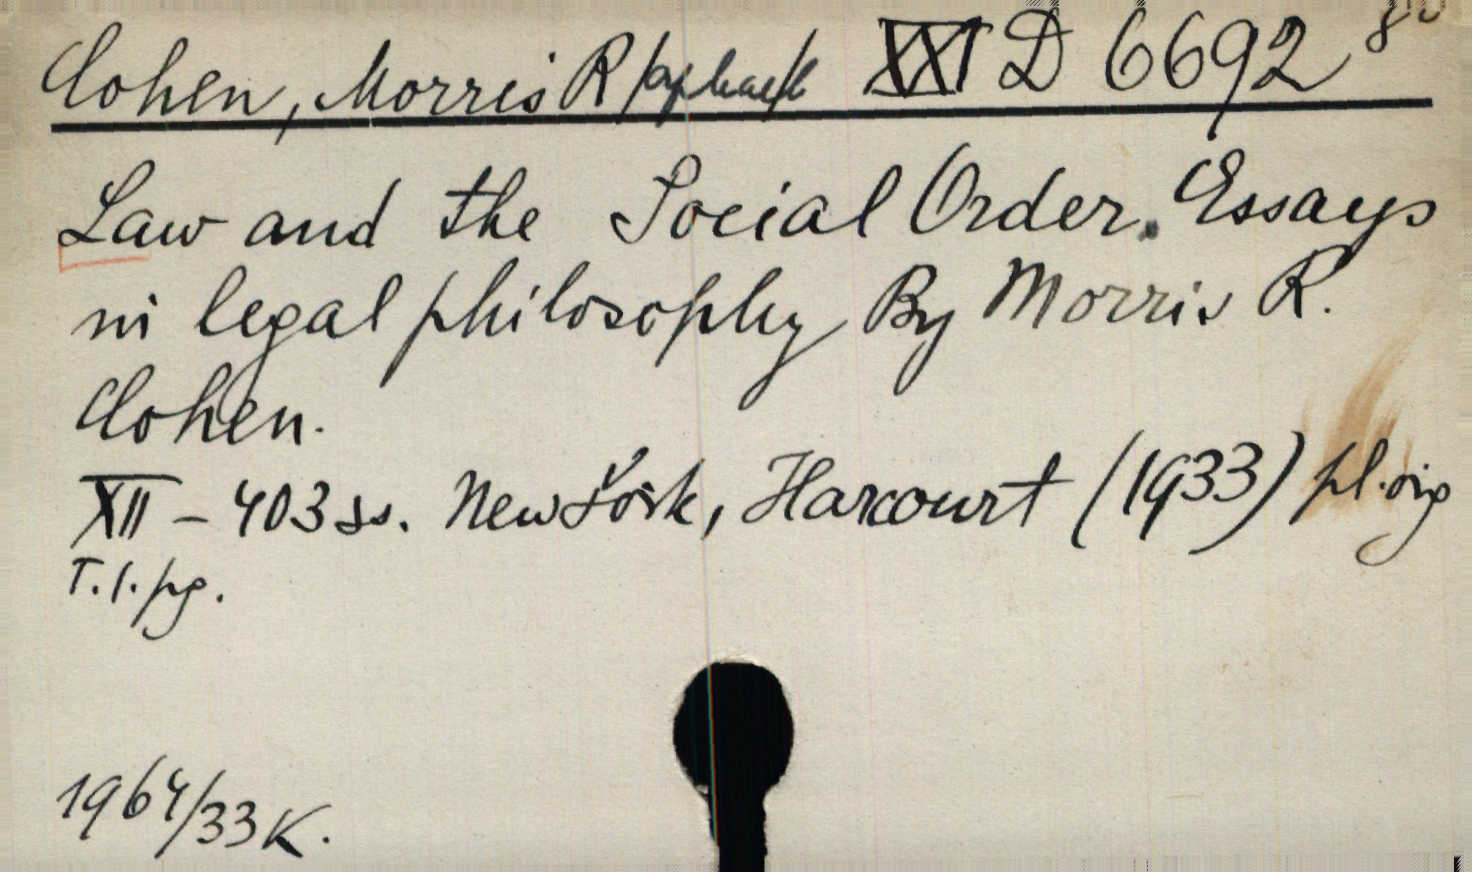 Cohen, Morris R/aphael/ XXI D 6692 8°
Law and the Social Order. Essays
in legal philosophy By Morris R.
Cohen.
XII – 403 ss. New York, Harcourt (1933) pl. orig
T. I. pg.
1964/33 K.